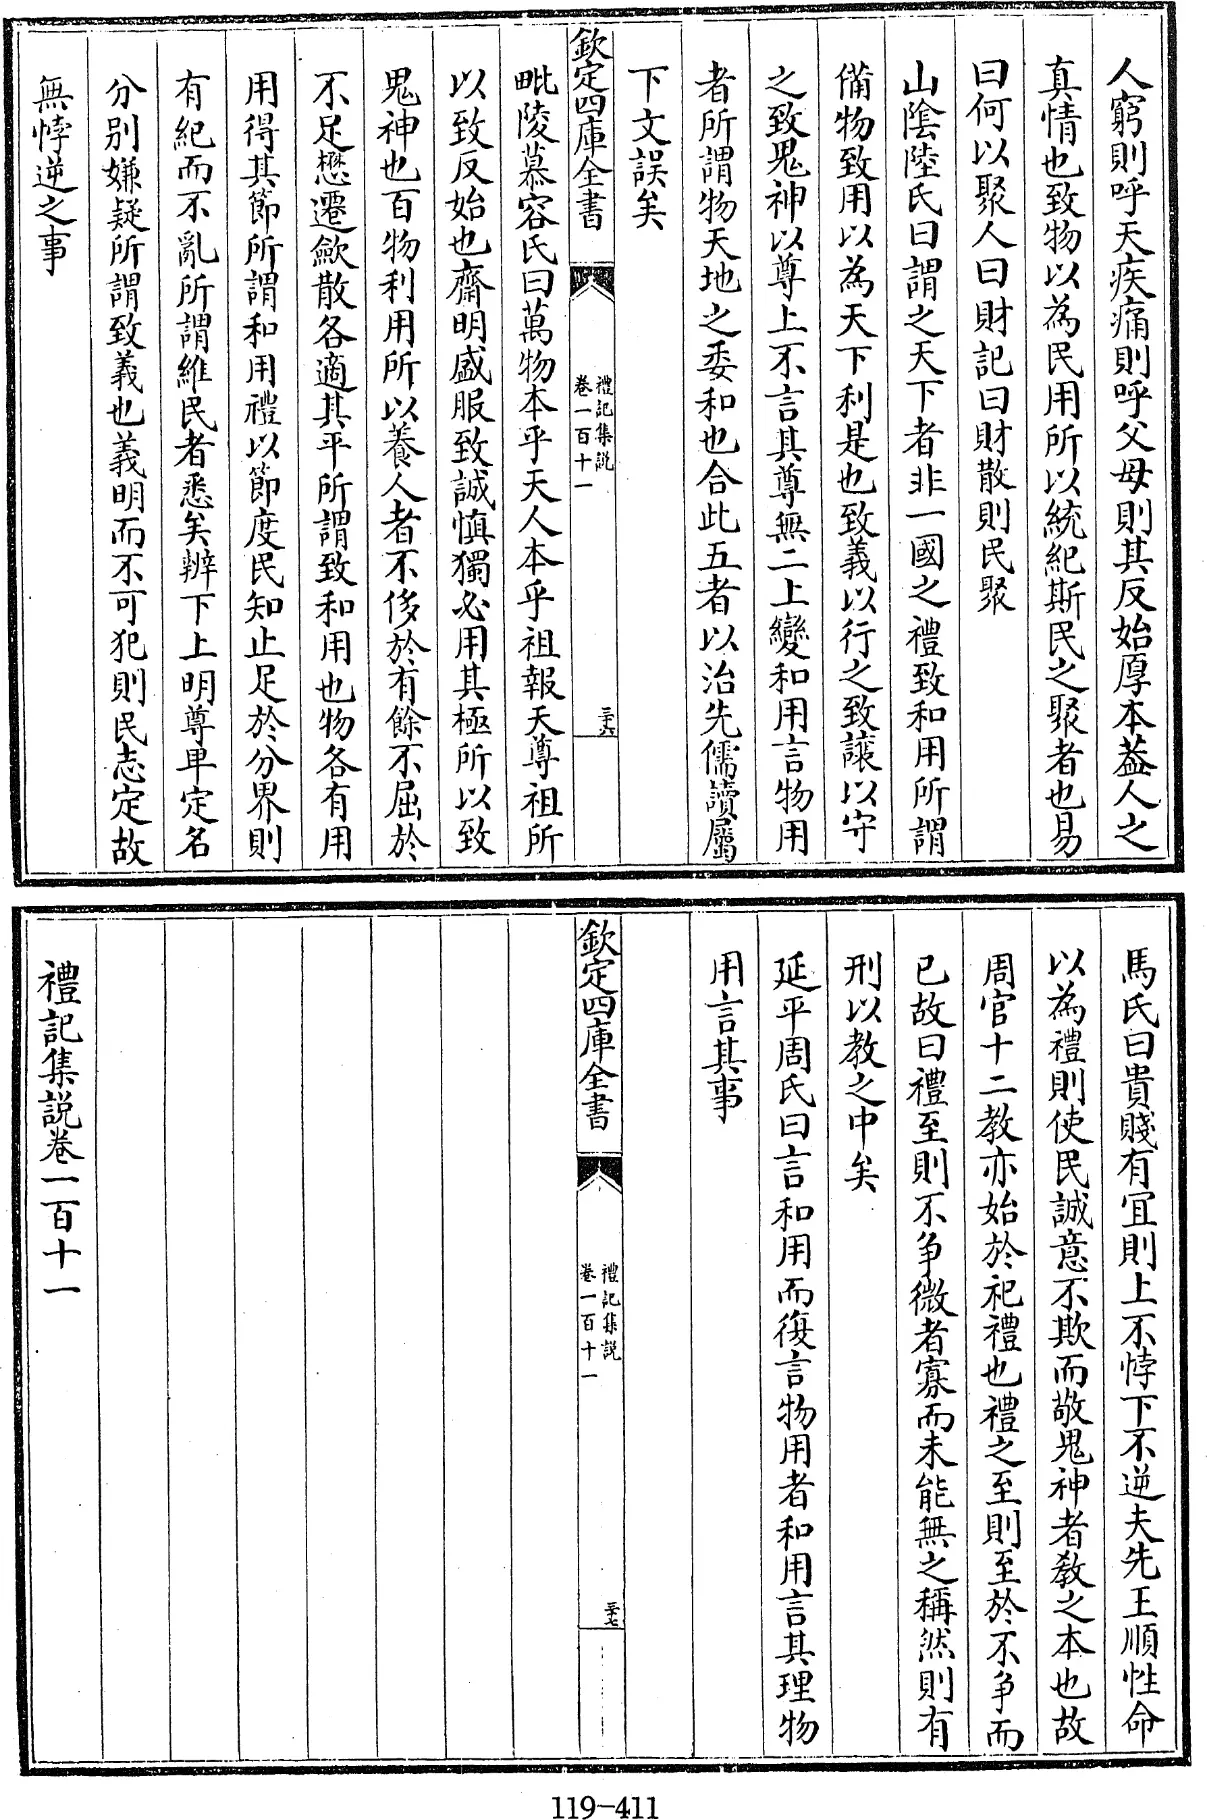 人窮則呼天疾痛則呼父母則其反始厚本葢人之
真情也致物以為民用所以統紀斯民之聚者也易
曰何以聚人曰財記曰財散則民聚
山陰陸氏曰謂之天下者非一國之禮致和用所謂
備物致用以為天下利是也致義以行之致讓以守
之致鬼神以尊上不言其尊無二上變和用言物用
者所謂物天地之委和也合此五者以治先儒讀屬
下文誤矣
欽定四庫全書
禮記集說
卷一百十一
三十六
毗陵慕容氏曰萬物本乎天人本乎祖報天尊祖所
以致反始也齋明盛服致誠慎獨必用其極所以致
鬼神也百物利用所以養人者不侈於有餘不屈於
不足懋遷歛散各適其平所謂致和用也物各有用
用得其節所謂和用禮以節度民知止足於分界則
有紀而不亂所謂維民者悉矣辨下上明尊卑定名
分別嫌疑所謂致義也義明而不可犯則民志定故
無悖逆之事
馬氏曰貴賤有宜則上不悖下不逆夫先王順性命
以為禮則使民誠意不欺而敬鬼神者教之本也故
周官十二教亦始於祀禮也禮之至則至於不爭而
已故曰禮至則不爭微者寡而未能無之稱然則有
刑以教之中矣
延平周氏曰言和用而復言物用者和用言其理物
用言其事
欽定四庫全書
禮記集說
卷一百十一
三十七
禮記集説卷一百十一
119-411